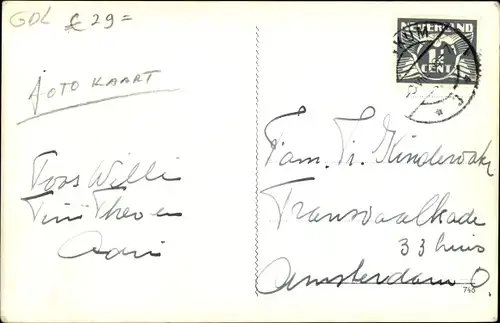 GDL £ 29=
FOTO KAART
Toos Willi
Tini Theo en
Adri
NEDERLAND
1½
CENT
Fam. Ti. Kindervak
Transvaalkade
33 huis
Amsterdam O.
740